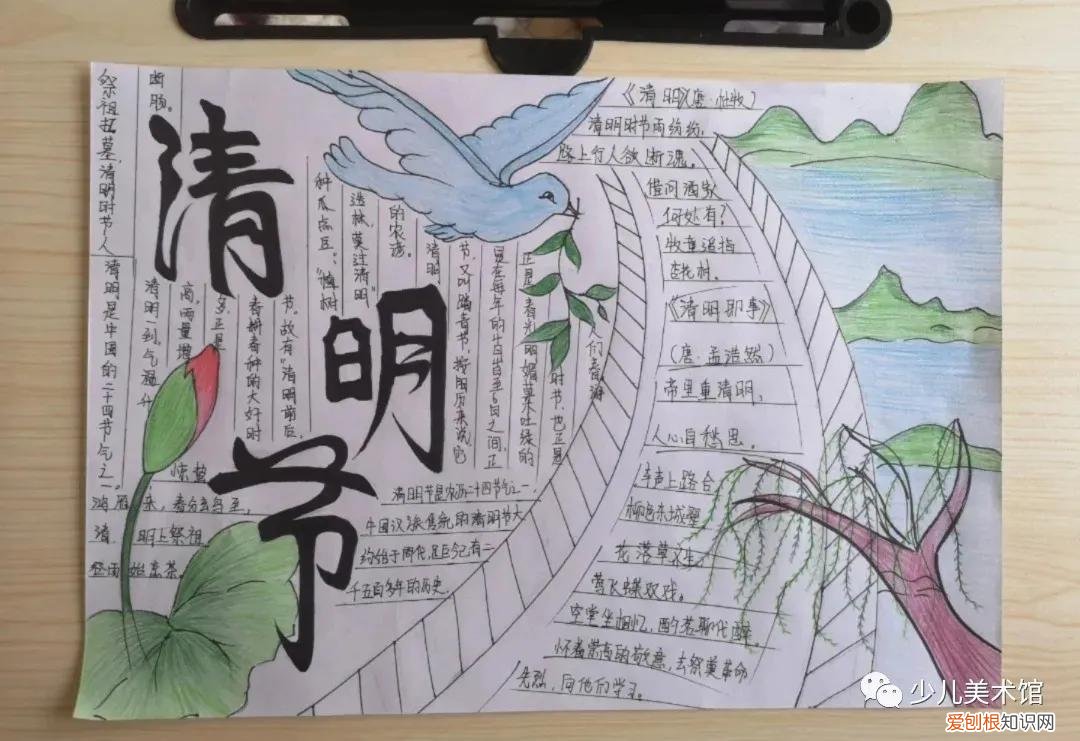 清明节
祭祖扫墓，清明时节人
断肠。
清明是中国的二十四节气之一。
清明一到，气温升
高，雨量增
多，正是
春耕春种的大好时
节。故有“清明前后，
种瓜点豆”、“植树
造林，莫过清明”
的农谚。
清明
节，又叫踏青节，按阳历来说，它
是在每年的4月4日至6日之间，正
正是春光明媚草木吐绿的
时节，也正是
们春游
惊蛰
清明上祭祖
清明节是农历二十四节气之一，
中国汉族传统的清明节大
约始于周代，距今已有二
千五百多年的历史。
《清明》（唐·杜牧）
清明时节雨纷纷，
路上行人欲断魂。
借问酒家
何处有？
牧童遥指
杏花村。
《清明即事》
（唐·孟浩然）
帝里重清明，
人心自愁思。
车声上路合
柳色东城翠
花落草
莺飞蝶双戏。
空堂坐相忆，酌茗聊代醉。
怀着崇高的敬意，去祭奠革命
先烈，向他们学习。
少儿美术馆
爱刨根知识网